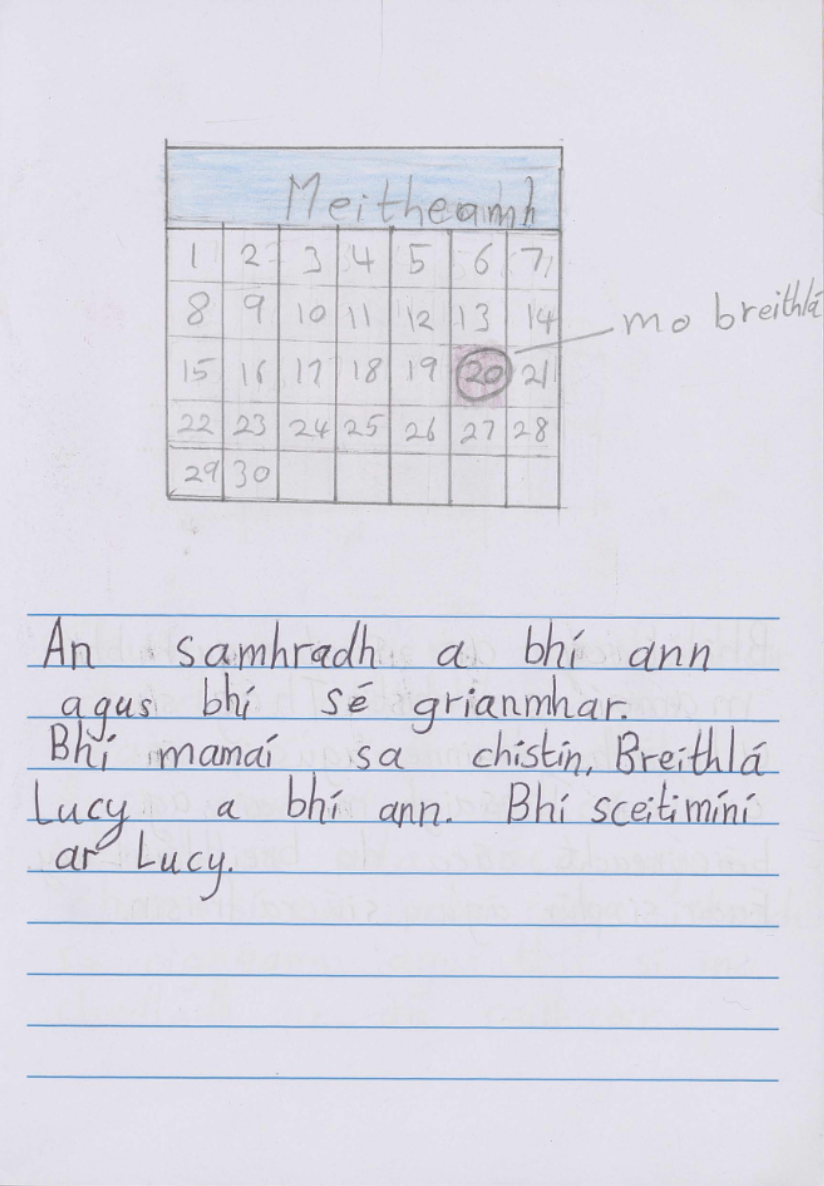 Meitheamh
1 2 3 4 5 6 7
8 9 10 11 12 13 14
mo breithlá
15 16 17 18 19 20 21
22 23 24 25 26 27 28
29 30
An samhradh a bhí ann
agus bhí sé grianmhar.
Bhí mamaí sa chistin. Breithlá
Lucy a bhí ann. Bhí sceitimíní
ar Lucy.